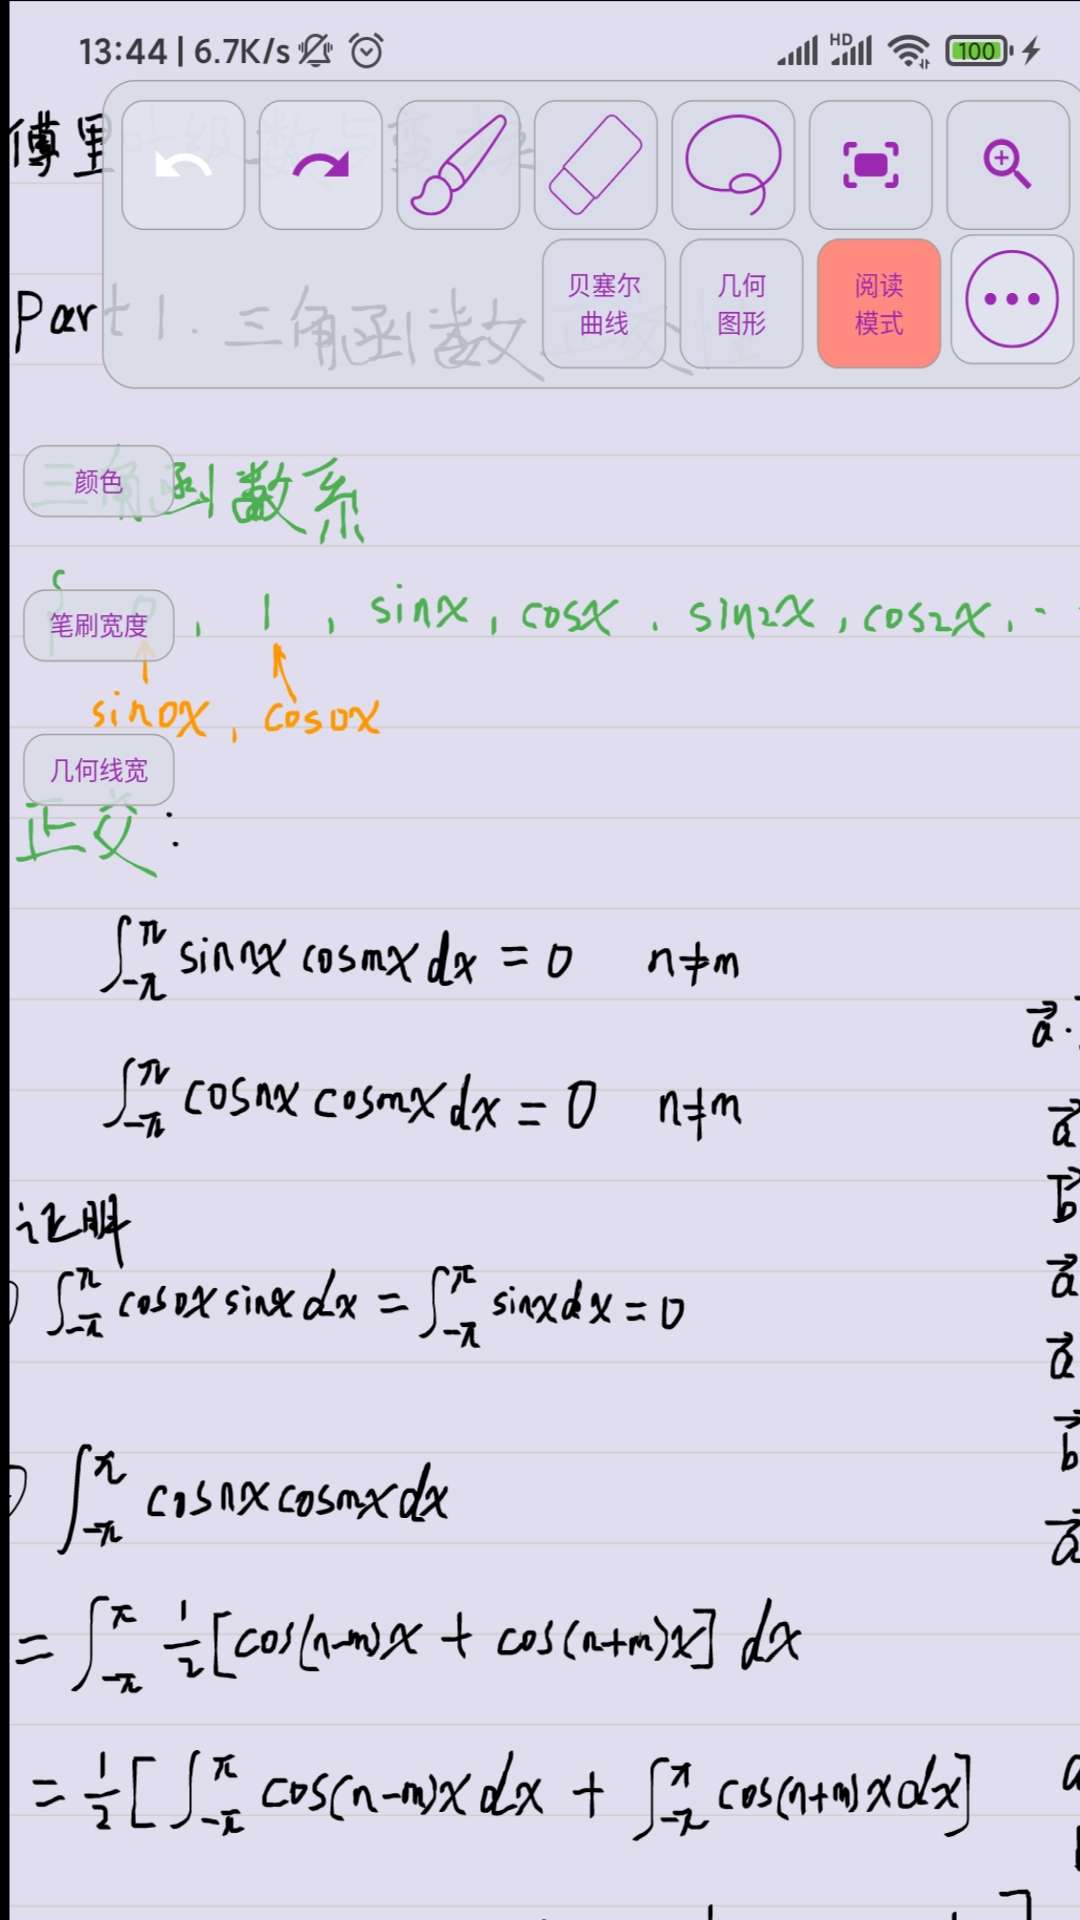 13:44 | 6.7K/s HD 100
傅里叶级数与变换
贝塞尔曲线 几何图形 阅读模式
Part1. 三角函数正交性
颜色
三角函数系
笔刷宽度
{ 0, 1, sinx, cosx, sin2x, cos2x, ..
sin0x, cos0x
几何线宽
正交:
∫_{-π}^{π} sin nx cos mx dx = 0 n≠m
a⃗ ·
∫_{-π}^{π} cos nx cos mx dx = 0 n≠m
a⃗
b⃗
证明
a⃗
∫_{-π}^{π} cos0x sinx dx = ∫_{-π}^{π} sinx dx = 0
a⃗
b⃗
∫_{-π}^{π} cos nx cos mx dx
a⃗
= ∫_{-π}^{π} 1/2 [cos(n-m)x + cos(n+m)x] dx
= 1/2 [∫_{-π}^{π} cos(n-m)x dx + ∫_{-π}^{π} cos(n+m)x dx]